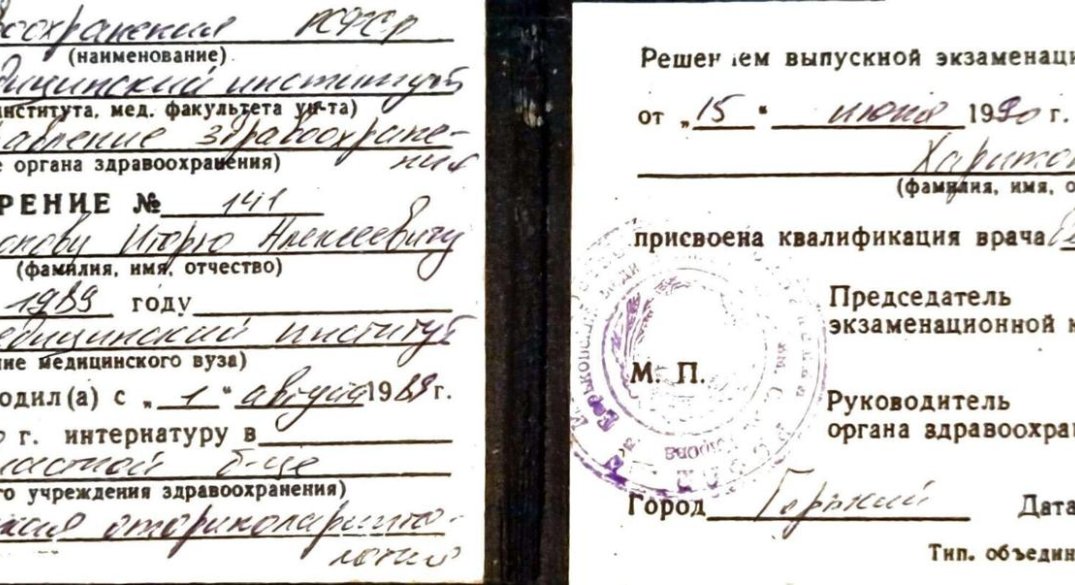 воохранения РСФСР
(наименование)
едицинский институт
института, мед. факультета ун-та)
авление здравоохране-
ния
е органа здравоохранения)
РЕНИЕ № 141
онову Игорю Алексеевичу
(фамилия, имя, отчество)
1989 году
едицинский институт
ние медицинского вуза)
одил(а) с „ 1 " августа 1989 г.
г. интернатуру в
ластной б-це
го учреждения здравоохранения)
оториноларинго-
логия
Решением выпускной экзаменаци
от „ 15 " июня 1990 г.
Харитон
(фамилия, имя, о
присвоена квалификация врача
Председатель
экзаменационной к
М. П.
Руководитель
органа здравоохра
Город Горький Дата
Тип. объедин